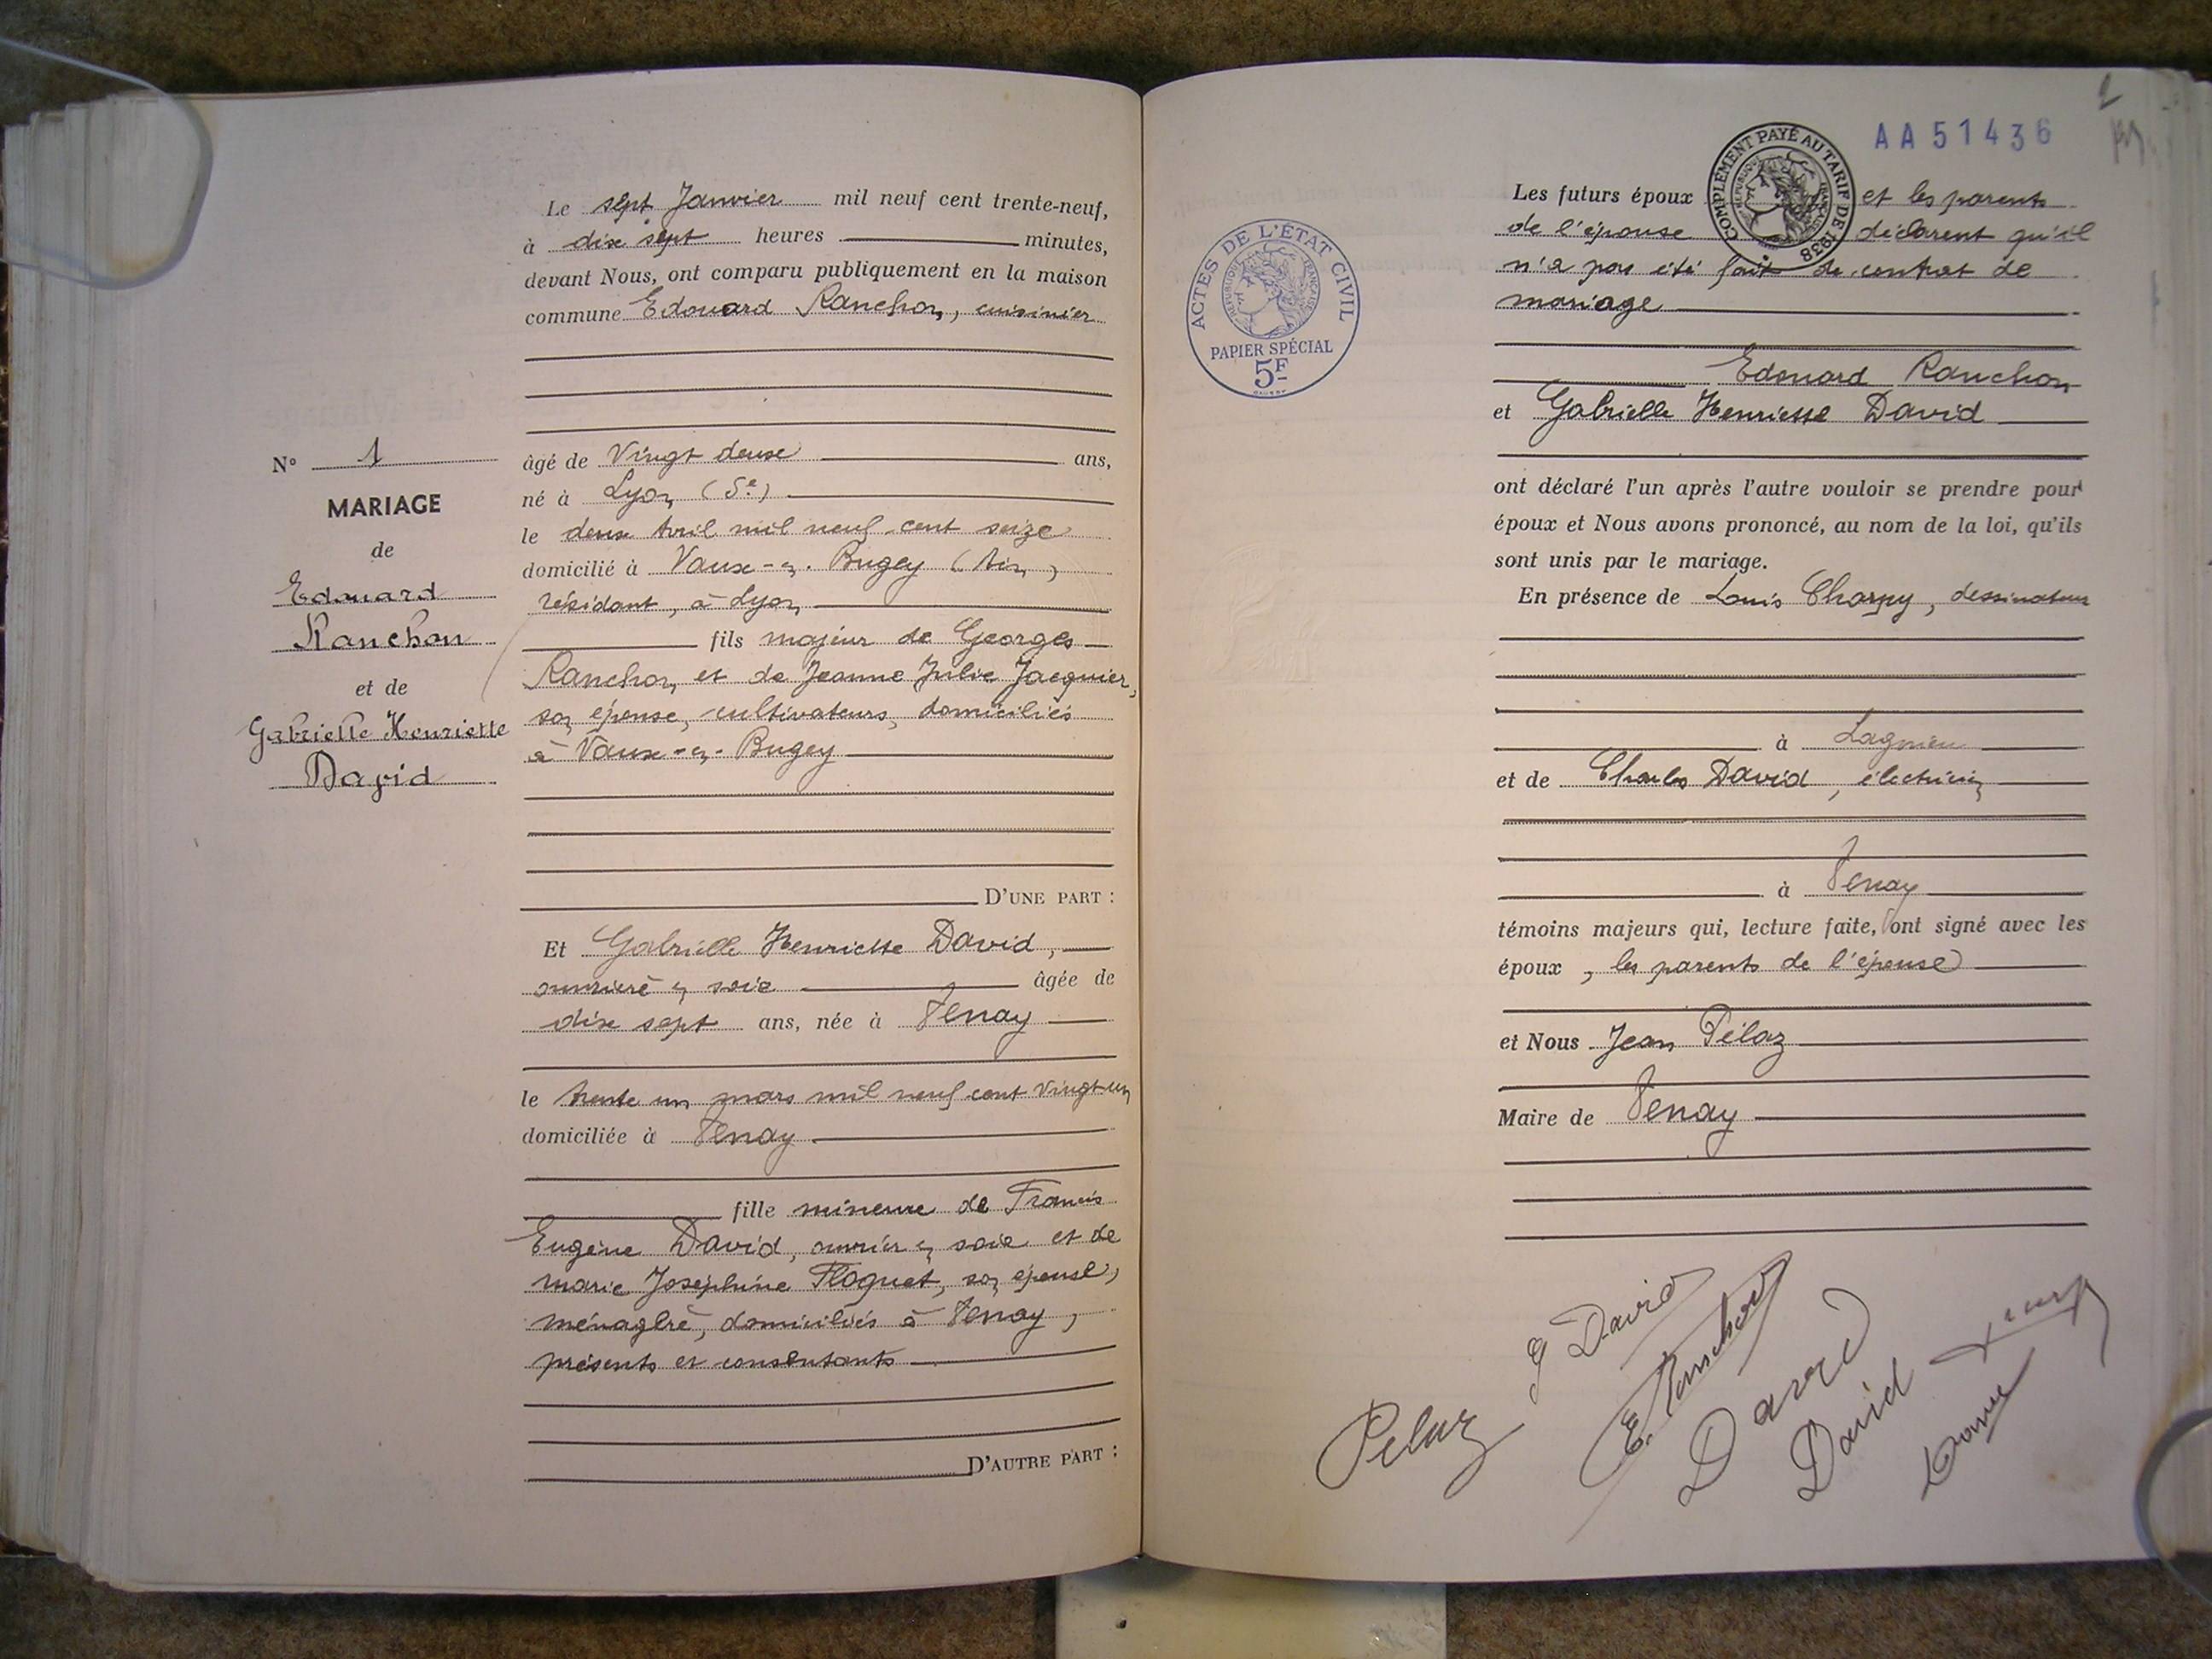 N° 1
MARIAGE
de
Edouard
Ranchon
et de
Gabrielle Henriette
David
Le sept Janvier mil neuf cent trente-neuf,
à dix sept heures minutes,
devant Nous, ont comparu publiquement en la maison
commune Edouard Ranchon, cuisinier
âgé de Vingt deux ans,
né à Lyon (5e)
le deux Avril mil neuf cent seize
domicilié à Vaux-en-Bugey (Ain)
résidant, à Lyon
fils majeur de Georges
Ranchon, et de Jeanne Julie Jacquier,
son épouse, cultivateurs, domiciliés
à Vaux-en-Bugey
D'UNE PART :
Et Gabrielle Henriette David,
ouvrière en soie âgée de
dix sept ans, née à Tenay
le trente un mars mil neuf cent vingt-un
domiciliée à Tenay
fille mineure de Francis
Eugène David, ouvrier en soie et de
marie Joséphine Floquet, son épouse,
ménagère, domiciliés à Tenay,
présents et consentants
D'AUTRE PART :
AA51436
COMPLÉMENT PAYÉ AU TARIF DE 1938
RÉPUBLIQUE FRANÇAISE
ACTES DE L'ÉTAT CIVIL
RÉPUBLIQUE FRANÇAISE
PAPIER SPÉCIAL
5F
Les futurs époux et les parents
de l'épouse déclarent qu'il
n'a pas été fait de contrat de
mariage
Edouard Ranchon
et Gabrielle Henriette David
ont déclaré l'un après l'autre vouloir se prendre pour
époux et Nous avons prononcé, au nom de la loi, qu'ils
sont unis par le mariage.
En présence de Louis Charpy, dessinateur
à Lagnieu
et de Charles David, électricien
à Tenay
témoins majeurs qui, lecture faite, ont signé avec les
époux, les parents de l'épouse
et Nous Jean Pélaz
Maire de Tenay
Pelaz
G David
E. Ranchon
David
David